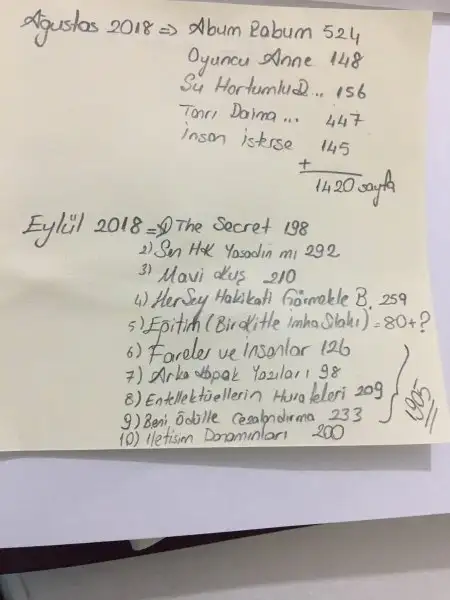 Ağustos 2018 => Abum Rabum 524
Oyuncu Anne 148
Su Hortumlu ... 156
Tanrı Daima ... 447
insan isterse 145
+
1420 sayfa
Eylül 2018 => 1) The Secret 198
2) Sen Hiç Yaşadın mı 292
3) Mavi Kuş 210
4) Her Şey Hakikati Görmekle B. 259
5) Eğitim (Bir Kitle İmha Silahı) = 80+?
6) Fareler ve İnsanlar 126
7) Arka Kapak Yazıları 98
8) Entellektüellerin Hurafeleri 209
9) Beni Ödülle Cezalandırma 233
10) İletişim Donanımları 200
1905